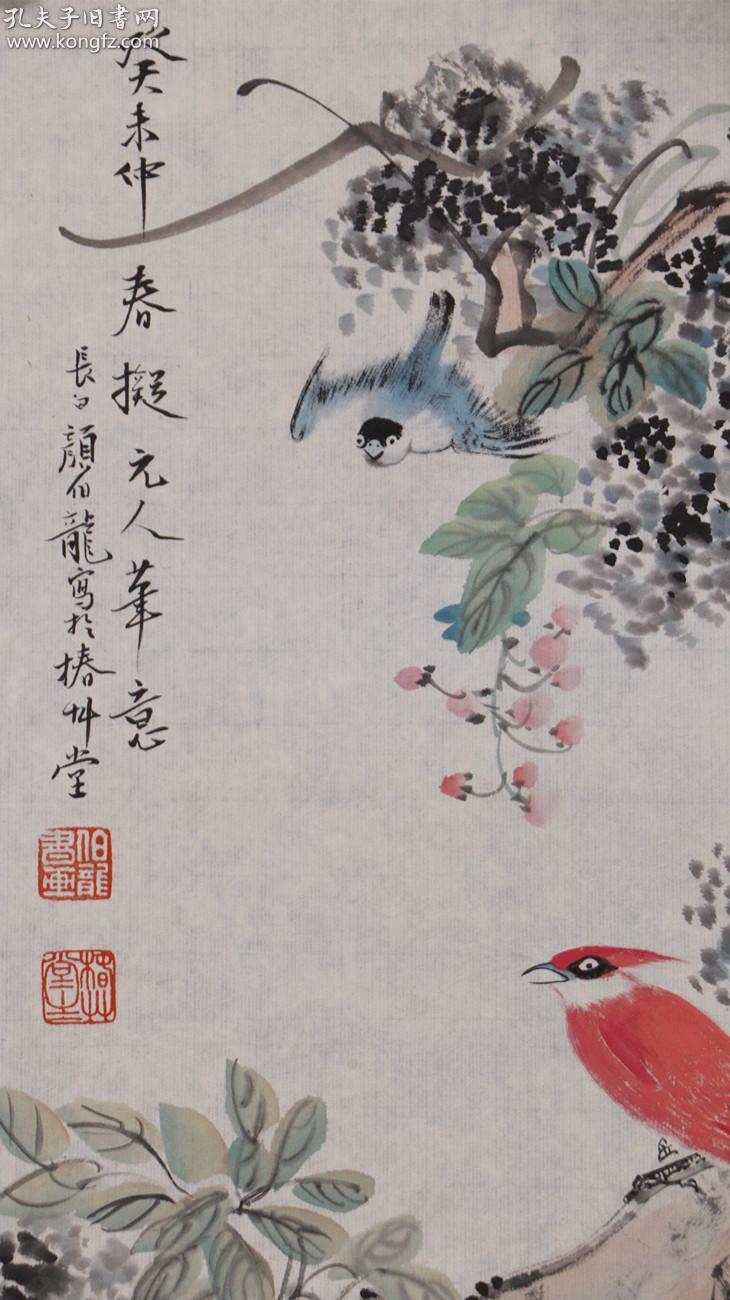 孔夫子旧書网
www.kongfz.com
癸未仲春擬元人筆意
長白顏伯龍寫於椿艸堂
伯龍書畫
椿艸堂